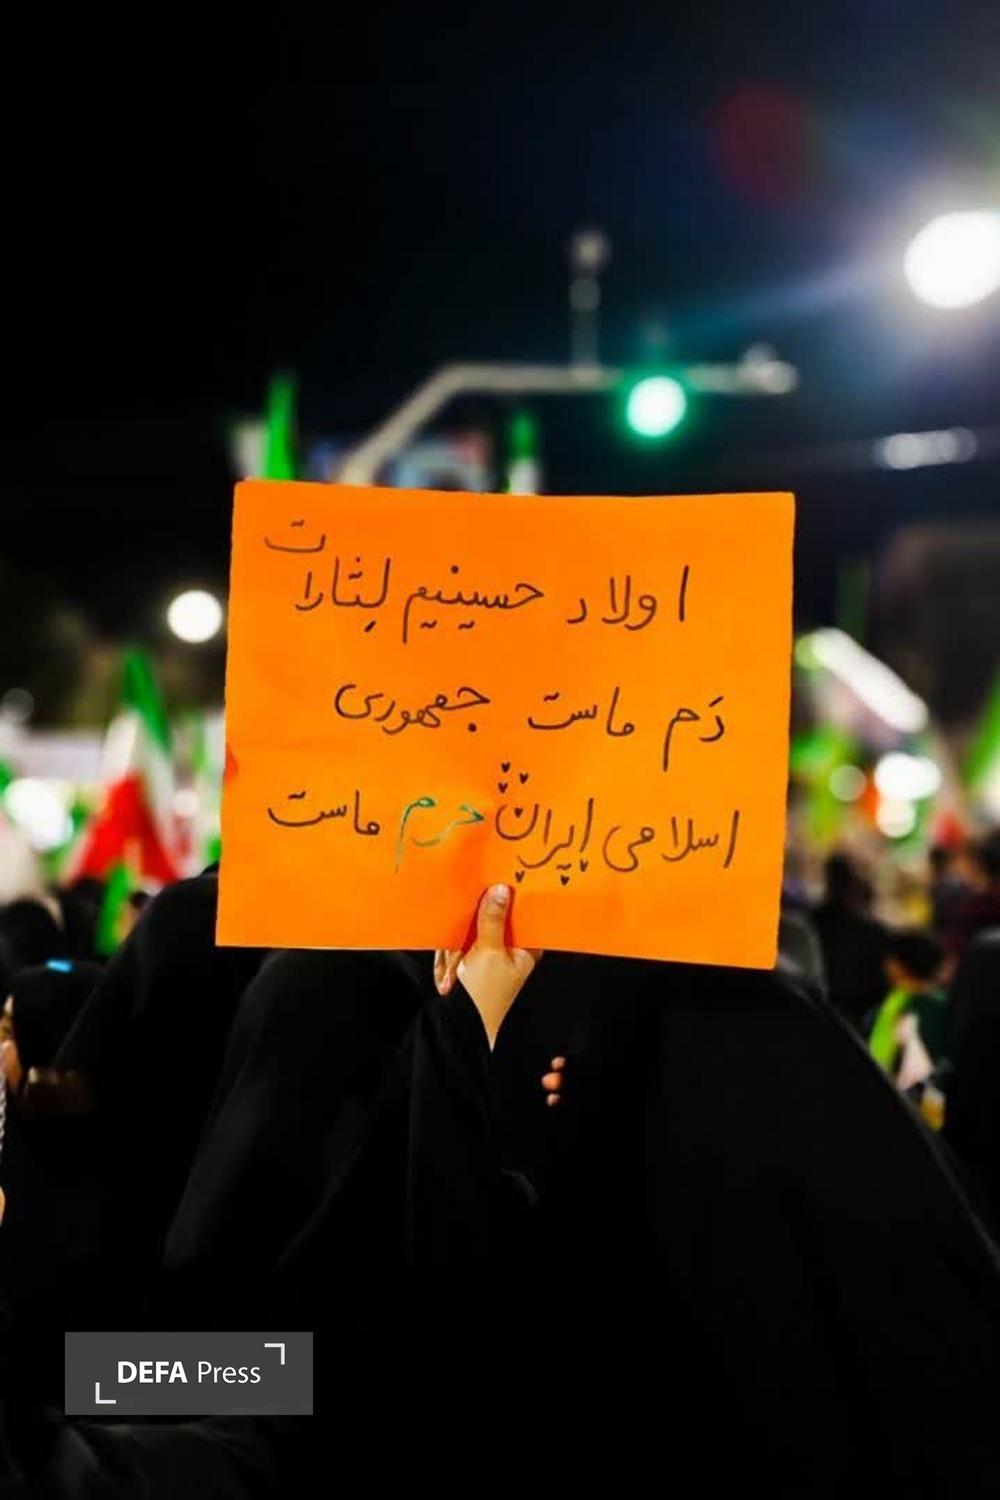 اولاد حسینیم لِثارات
دَم ماست جمهوری
اسلامی ایران حرم ماست
DEFA Press